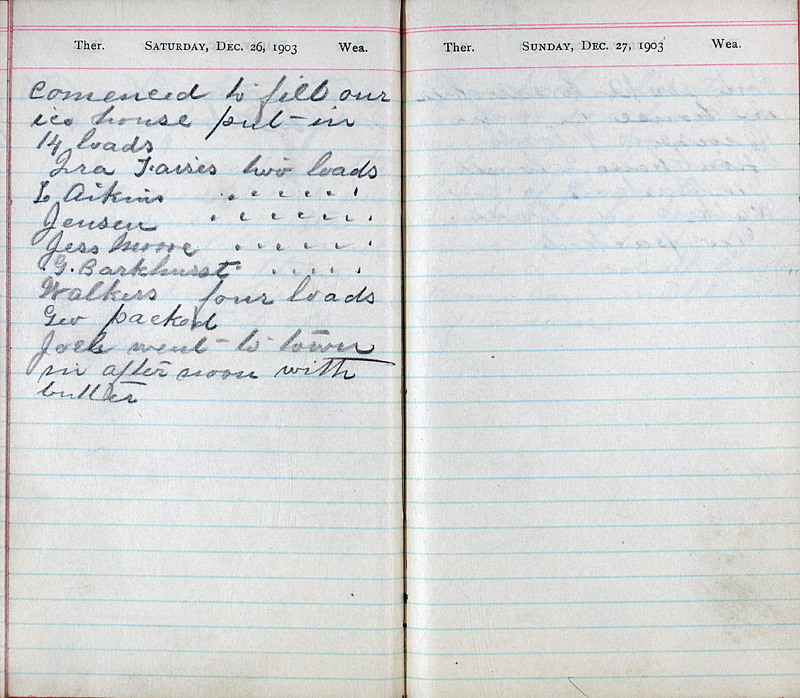 Ther. SATURDAY, DEC. 26, 1903 Wea.
Comenced to fill our
ice house put in
14 loads
Ira Faries two loads
L Aikins " " " " " "
Jensen " " " " " "
Jess Moore " " " " "
G. Barkhurst " " " " "
Walkers four loads
Geo packed
Joel went to town
in after noon with
butter
Ther. SUNDAY, DEC. 27, 1903 Wea.